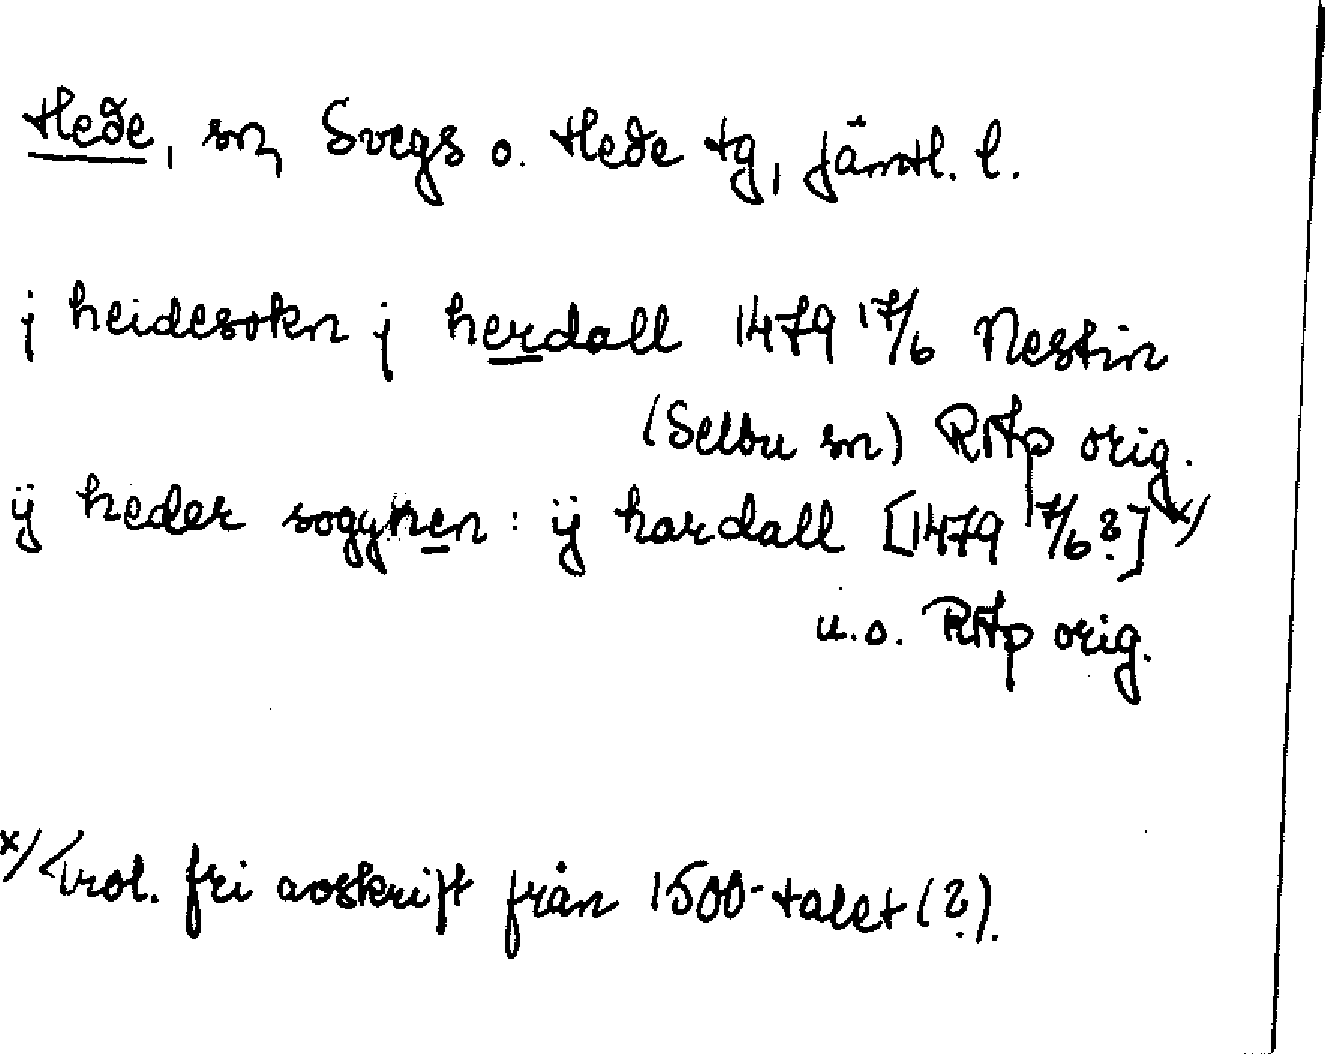 Hede, sn, Svegs o. Hede tg, Jämtl. l.
j heidesokn j herdall 1479 17/6 Nestin
(Selbu sn) RAp orig.
ÿ heder sogyken : ÿ hardall [1479 17/6?] x/
u.o. RAp orig.
x/ Trol. fri avskrift från 1500-talet (?).